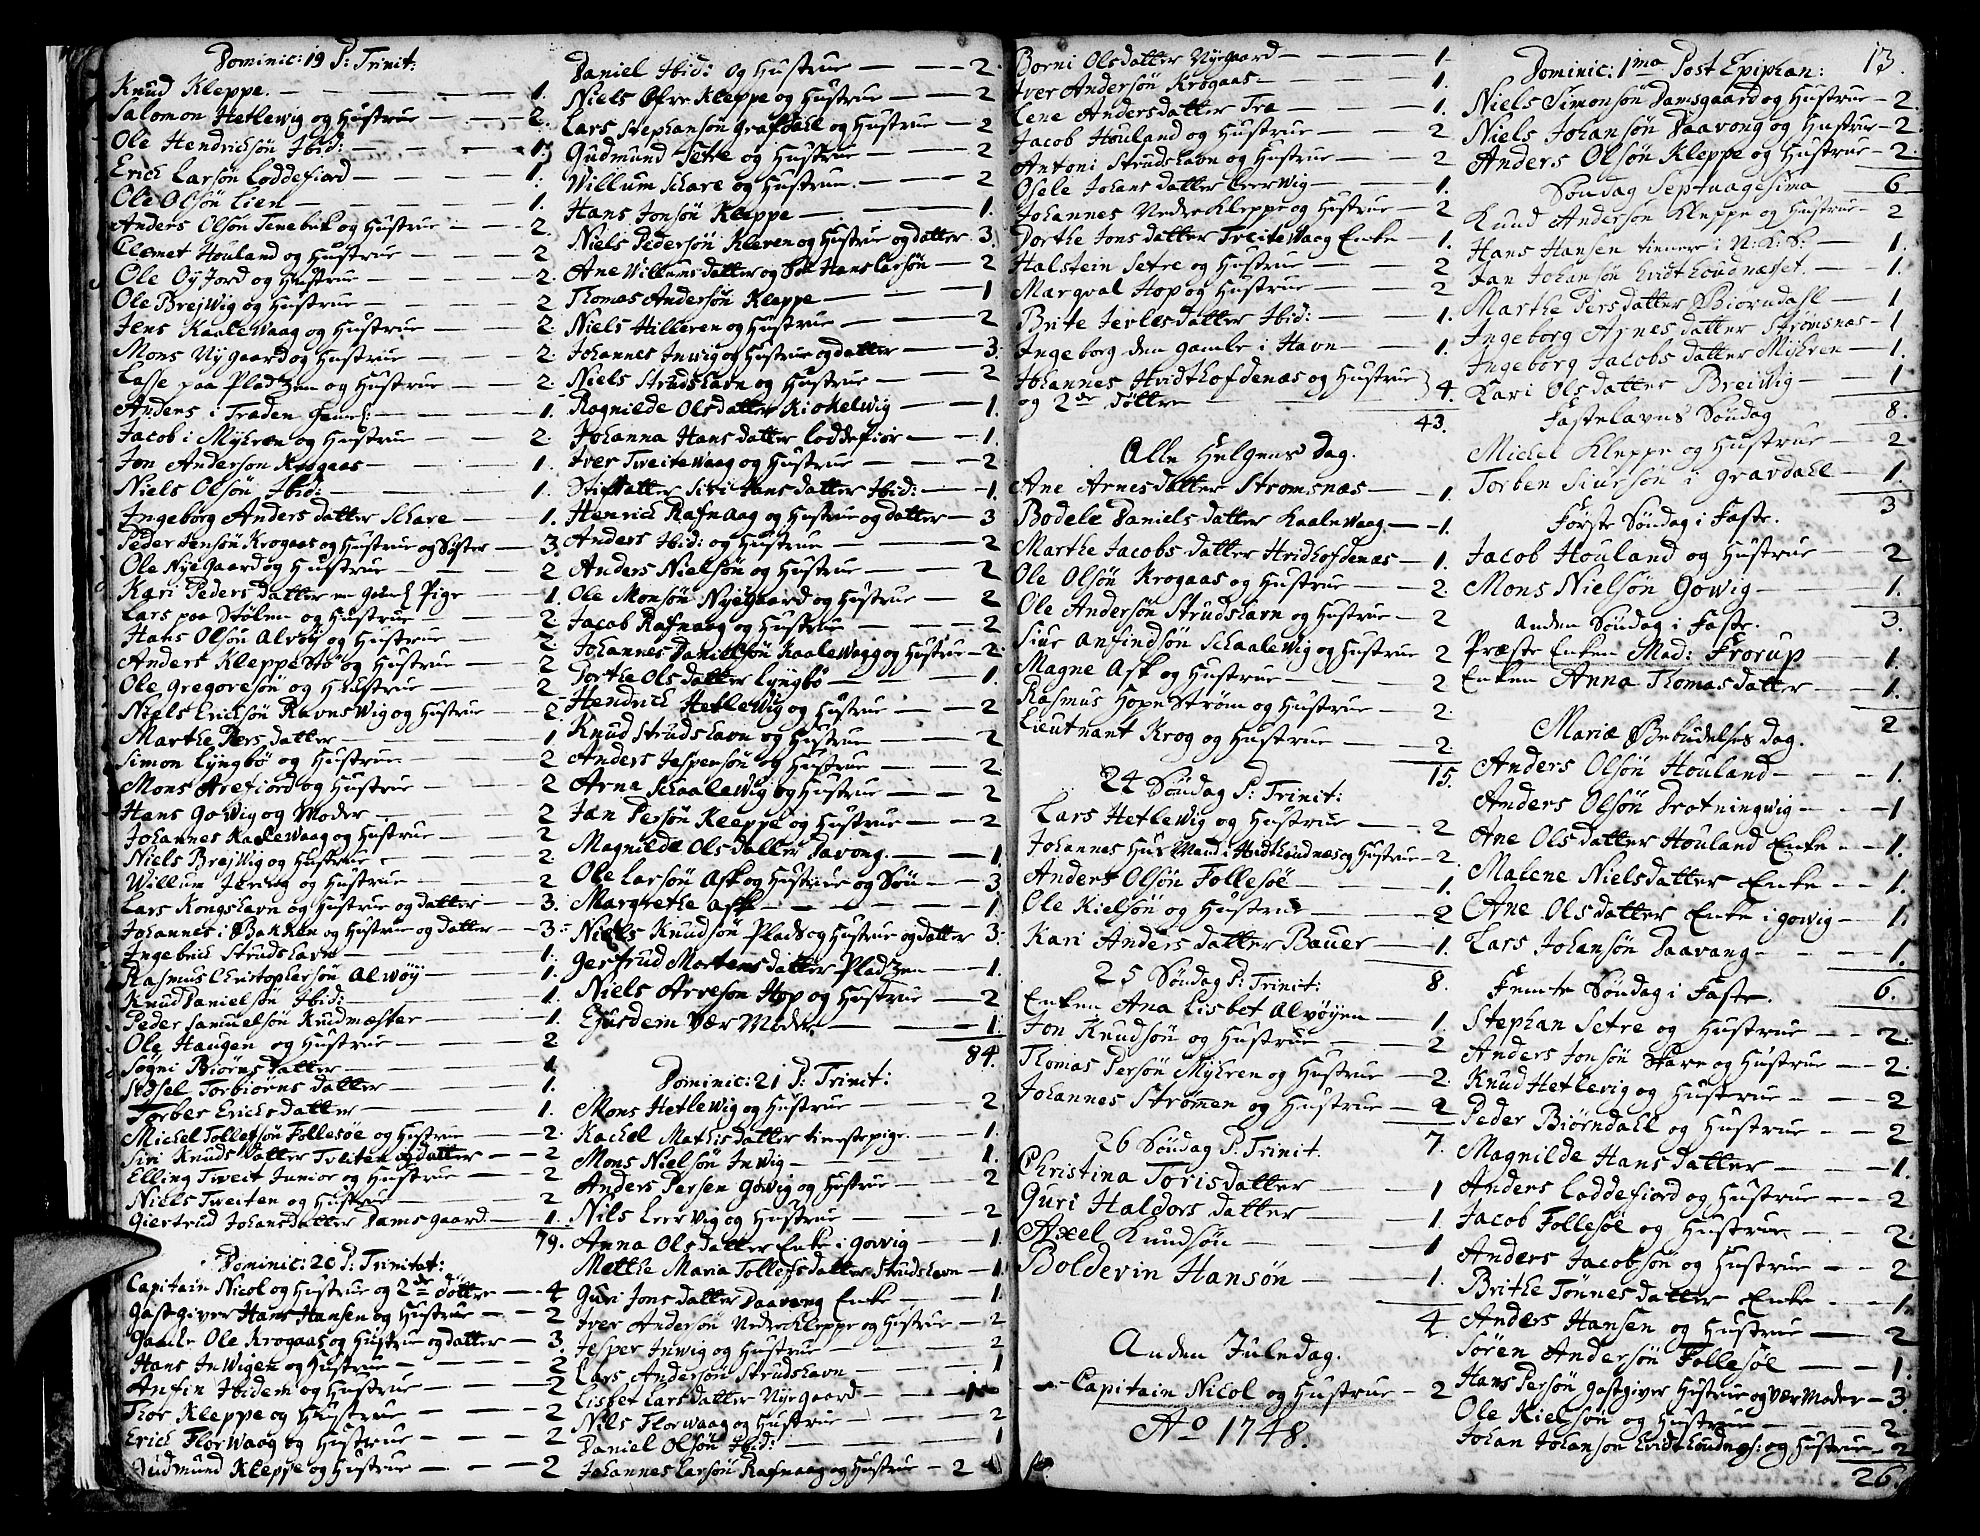 Dominic: 19 P: Trinit:
Knud Kleppe. — 1.
Salomon Hetlewig og Hustrue — 2.
Ole Hendrichsön Ibid: — 1.
Erich Larsön Loddefiord — 1.
Ole Olsön Lien — 1.
Anders Olsön Tenebek og Hustrue — 2.
Clemet Houland og Hustrue — 2
Ole Oyjord og Hustrue — 2.
Ole Brejwig og Hustrue — 2
Jens Kaalewaag og Hustrue — 2.
Mons Nygaard og Hustrue — 2.
Lasse paa Pladtzen og Hustrue — 2.
Anders i Traden — 1.
Jacob i Myhren og Hustrue — 2.
Jon Anderson Krogaas — 1.
Niels Olsön Ibid: — 1.
Ingeborg Anders datter Schare — 1.
Peder Jensön Krogaas og Hustrue og Söster — 3.
Ole Nyegaard og Hustrue — 2
Kari Peders datter Pige — 1.
Lars paa Stölen og Hustrue — 2
Hans Olsön Alvöy og Hustrue — 2.
Anders Kleppestö og Hustrue — 2
Ole Gregoresön og Hustrue — 2
Niels Erichsön Ravnswig og Hustrue — 2.
Marthe Pers datter — 1
Simon Lyngbö og Hustrue — 2
Mons Arefiord og Hustrue — 2
Hans Gowig og Moder — 2
Johannes Kaalewaag og Hustrue — 2
Niels Brejwig og Hustrue — 2.
Willum og Hustrue — 2
Lars Kongshavn og Hustrue og datter — 3.
Johannes i Bakken og Hustrue og datter — 3.
Ingebrict Strudshavn — 1.
Rasmus Christophersön Alwöy — 1.
Knud Danielsön Ibid: — 1.
Peder Samuelsön Krudmæster — 1.
Ole Haugen og Hustrue — 2
Sögni Biörns datter — 1.
Sidsel Torbiörns datter — 1.
Torber Erichs datter — 1.
Michel Tollefsön Follesöe og Hustrue — 2.
Siri Knuds datter Tveiten og datter — 2
Elling Tweit Junior og Hustrue — 2
Niels Tweiten og Hustrue — 2
Giertrud Johansdatter Damsgaard — 1.
79.
Dominic: 20 P: Trinitat:
Capitain Nicol og Hustrue og 2de dötre — 4
Gastgiver Hans Hansen og Hustrue — 2
Gamle Ole Krogaas og Hustrue og datter — 3.
Hans Inwigen og Hustrue — 2
Anfin Ibidem og Hustrue — 2
Thor Kleppe og Hustrue — 2
Erich Florwaag og Hustrue — 2
Gudmund Kleppe og Hustrue — 2
Daniel Ibid: og Hustrue — 2.
Niels Öfre Kleppe og Hustrue — 2
Lars Stephansön Grafdahl og Hustrue — 2
Gudmund Setre og Hustrue — 2
Willum Schare og Hustrue — 2
Hans Jonsön Kleppe — 1.
Niels Pedersön Kleven og Hustrue og datter — 3.
Ane Willums datter og Hans Larsön — 2
Thomas Andersön Kleppe — 1
Niels Hilleren og Hustrue — 2
Johannes Inwig og Hustrue og datter — 3.
Niels Strudshavn og Hustrue — 2
Rognilde Olsdatter Kiokelwig — 1.
Johanna Hans datter Loddefior — 1.
Iver Tweitewaag og Hustrue — 2
Stifdatter Siri Hans datter Ibid: — 1.
Henrich Rafnaag og Hustrue og datter — 3
Anders Ibid: og Hustrue — 2
Anders Nielsön og Hustrue — 2
Ole Monsön Nyegaard og Hustrue — 2
Jacob Rafnaag og Hustrue — 2
Johannes Danielsön Kaalewaag og Hustrue — 2.
Dorthe Olsdatter Lyngbö — 1.
Hendrich Hetlewig og Hustrue — 2
Knud Strudshavn og Hustrue — 2
Anders Jespersön og Hustrue — 2
Arne Schaalewig og Hustrue — 2
Jan Persön Kleppe og Hustrue — 2
Magnilde Olsdatter Davong. — 1.
Ole Larsön Ask og Hustrue og Sön — 3
Margrethe Ask — 1.
Niels Knudsön Plads og Hustrue og datter 3.
Gertrud Mortensdatter Pladzen — 1.
Niels Arneson Hop og Hustrue — 2
Ejusdem Vær Moder — 1.
84.
Dominic: 21 P: Trinit:
Mons Hetlewig og Hustrue — 2
Rachel Mathisdatter tienestepige — 1.
Mons Nielsön Inwig — 1.
Anders Persen Gowig og Hustrue — 2
Nils Leerwig og Hustrue — 2
Anna Olsdatter Enke i Gowig — 1.
Mætthe Maria Tollefsdatter Strudshavn — 1.
Guri Jons datter Daavang Enke — 1
Iver Andersön Nedre Kleppe og Hustrue — 2
Jesper Inwig og Hustrue — 2
Lars Andersön Strudshavn — 1
Lisbet Larsdatter Nyegaard — 1
Nils Florwaag og Hustrue — 2
Daniel Olsön Ibid: — 1
Johannes Larsön Rafnaag og Hustrue — 2
Borni Olsdatter Nyegaard — 1.
Iver Andersön Krogaas — 1.
Lene Andersdatter Træ — 1.
Jacob Houland og Hustrue — 2
Antoni Strudshavn og Hustrue — 2
Osele Johans datter Leerwig — 1.
Johannes Nedre Kleppe og Hustrue — 2
Dorthe Jons datter Tweitewaag Enke — 1.
Halstein Setre og Hustrue — 2
Marqval Hop og Hustrue — 2
Brite datter Ibid: — 1.
Ingeborg den gamle i Havn — 1.
Johannes Hvidthofdenæs og Hustrue
og 2de Döttre — 4.
43.
Alle Helgens Dag.
Ane Arnesdatter Strömsnæs — 1.
Bodele Daniels datter Kaalewaag — 1.
Marthe Jacobs datter Hvidhofdenæs — 1.
Ole Olsön Krogaas og Hustrue — 2.
Ole Andersön Strudshavn og Hustrue — 2
Siur Anfindsön Schaalewig og Hustrue 2
Magne Ask og Hustrue — 2
Rasmus Hope Ström og Hustrue — 2.
Lieutnant Krog og Hustrue — 2.
15.
24 Söndag P: Trinit:
Lars Hetlewig og Hustrue — 2
Johannes Huusmand i Hvidthoudnæs og Hustrue — 2.
Anders Olsön Follesöe — 1.
Ole Nielsön og Hustrue — 2
Kari Anders datter Bauer — 1.
8.
25 Söndag P: Trinit:
Enken Ana Lisbet Alvöyen — 1.
Jon Knudsön og Hustrue — 2
Thomas Persön Myhren og Hustrue — 2.
Johannes Strömen og Hustrue — 2
7.
26 Söndag P: Trinit.
Christina Torisdatter — 1
Guri Haldors datter — 1.
Axel Knudsön — 1
Boldevin Hansön — 1.
4.
Anden Juledag.
Capitain Nicol og Hustrue — 2
Ao 1748.
13.
Dominic: 1ma Post Epiphan:
Niels Simonsön Damsgaard og Hustrue — 2.
Niels Johansön Daavong og Hustrue — 2.
Anders Olsön Kleppe og Hustrue — 2.
6.
Söndag Septuagesima
Knud Andersön Kleppe og Hustrue — 2
Hans Hansen tienner i N: K: S: — 1.
Jan Johansön Hvidthoudnæsset. — 1.
Marthe Persdatter Biörndahl — 1
Ingeborg Arnes datter Strömsnæs — 1
Ingeborg Jacobs datter Myhren — 1.
Kari Olsdatter Breiwig — 1
8.
Fastelavns Söndag
Michel Kleppe og Hustrue — 2
Torben Siursön i Gravdahl — 1.
3
Förste Söndag i Faste.
Jacob Houland og Hustrue — 2
Mons Nielsön Gowig — 1.
3.
Anden Söndag i Faste.
Præste Enken Mad: Frorup — 1.
Enken Anna Thomasdatter — 1.
2
Mariæ Bebudelses dag.
Anders Olsön Houland — 1.
Anders Olsön Drotningwig — 1
Ane Olsdatter Houland Enke — 1.
Malene Nielsdatter Enke — 1.
Ane Olsdatter Enke i gowig — 1.
Lars Johansön Daavang — 1.
6.
Femte Söndag i Faste.
Stephan Setre og Hustrue — 2.
Anders Jonsön Skare og Hustrue — 2.
Knud Hetlevig og Hustrue — 2
Peder Biörndahl og Hustrue — 2
Magnilde Hansdatter — 1.
Anders Loddefiord og Hustrue — 2
Jacob Follesöe og Hustrue — 2.
Anders Jacobsön og Hustrue — 2
Brithe Tönnesdatter Enke — 1.
Anders Hansen og Hustrue — 2
Sören Andersön Follesöe — 1.
Hans Persön Gastgiver Hustrue og Vær Moder — 3.
Ole Nielsön og Hustrue — 2
Johan Johansön Hvidthoudnæs: og Hustrue — 2
26.